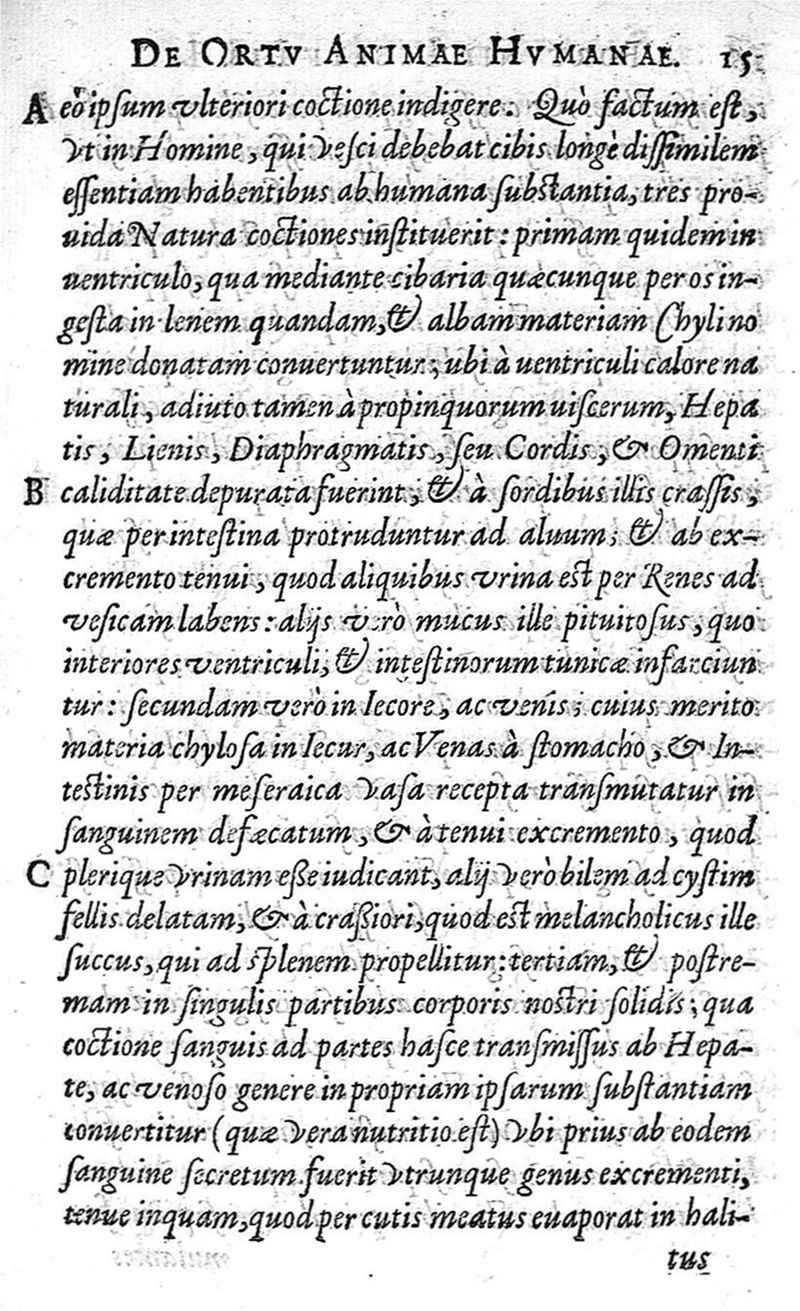 DE ORTV ANIMAE HVMANAE. 15
A eò ipsum vlteriori coctione indigere. Quò factum est,
vt in Homine, qui vesci debebat cibis longè dissimilem
essentiam habentibus ab humana substantia, tres pro-
uida Natura coctiones instituerit: primam quidem in
uentriculo, qua mediante cibaria quæcunque per os in-
gesta in lenem quandam, & albam materiam Chyli no
mine donatam conuertuntur; ubi à uentriculi calore na
turali, adiuto tamen à propinquorum uiscerum, Hepa
tis, Lienis, Diaphragmatis, seu Cordis, & Omenti
B caliditate depurata fuerint, & à sordibus illis crassis,
quæ per intestina protruduntur ad aluum; & ab ex-
cremento tenui, quod aliquibus vrina est per Renes ad
vesicam labens: alijs verò mucus ille pituitosus, quo
interiores ventriculi, & intestinorum tunicæ infarciun
tur: secundam verò in Iecore, ac venis; cuius merito
materia chylosa in Iecur, ac Venas à stomacho, & In-
testinis per meseraica vasa recepta transmutatur in
sanguinem defæcatum, & à tenui excremento, quod
C plerique vrinam esse iudicant, alij verò bilem ad cystim
fellis delatam, & à crassiori, quod est melancholicus ille
succus, qui ad splenem propellitur: tertiam, & postre-
mam in singulis partibus corporis nostri solidis; qua
coctione sanguis ad partes hasce transmissus ab Hepa-
te, ac venoso genere in propriam ipsarum substantiam
conuertitur (quæ vera nutritio est) vbi prius ab eodem
sanguine secretum fuerit vtrunque genus excrementi,
tenue inquam, quod per cutis meatus euaporat in hali-
tus